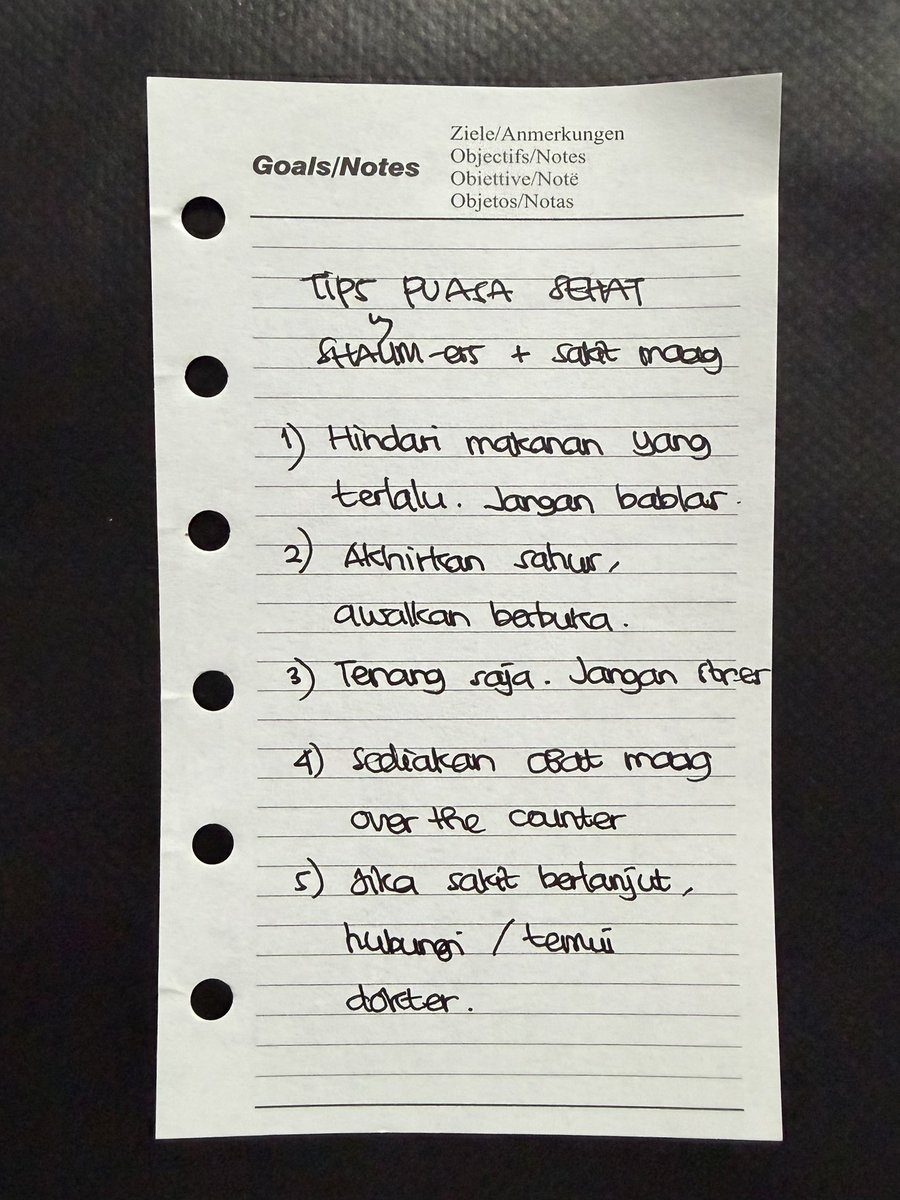 Goals/Notes
Ziele/Anmerkungen
Objectifs/Notes
Obiettive/Notë
Objetos/Notas
Tips PUASA SEHAT
SHAUM-ers + sakit maag
1) Hindari makanan yang
terlalu. Jangan bablas.
2) Akhirkan sahur,
awalkan berbuka.
3) Tenang saja. Jangan
4) Sediakan obat maag
over the counter
5) Jika sakit berlanjut,
hubungi / temui
dokter.